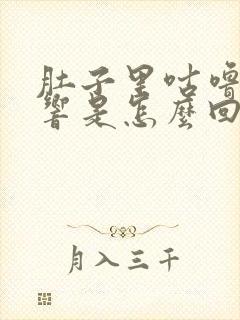 肚子里咕噜
响是怎么回
月入三千